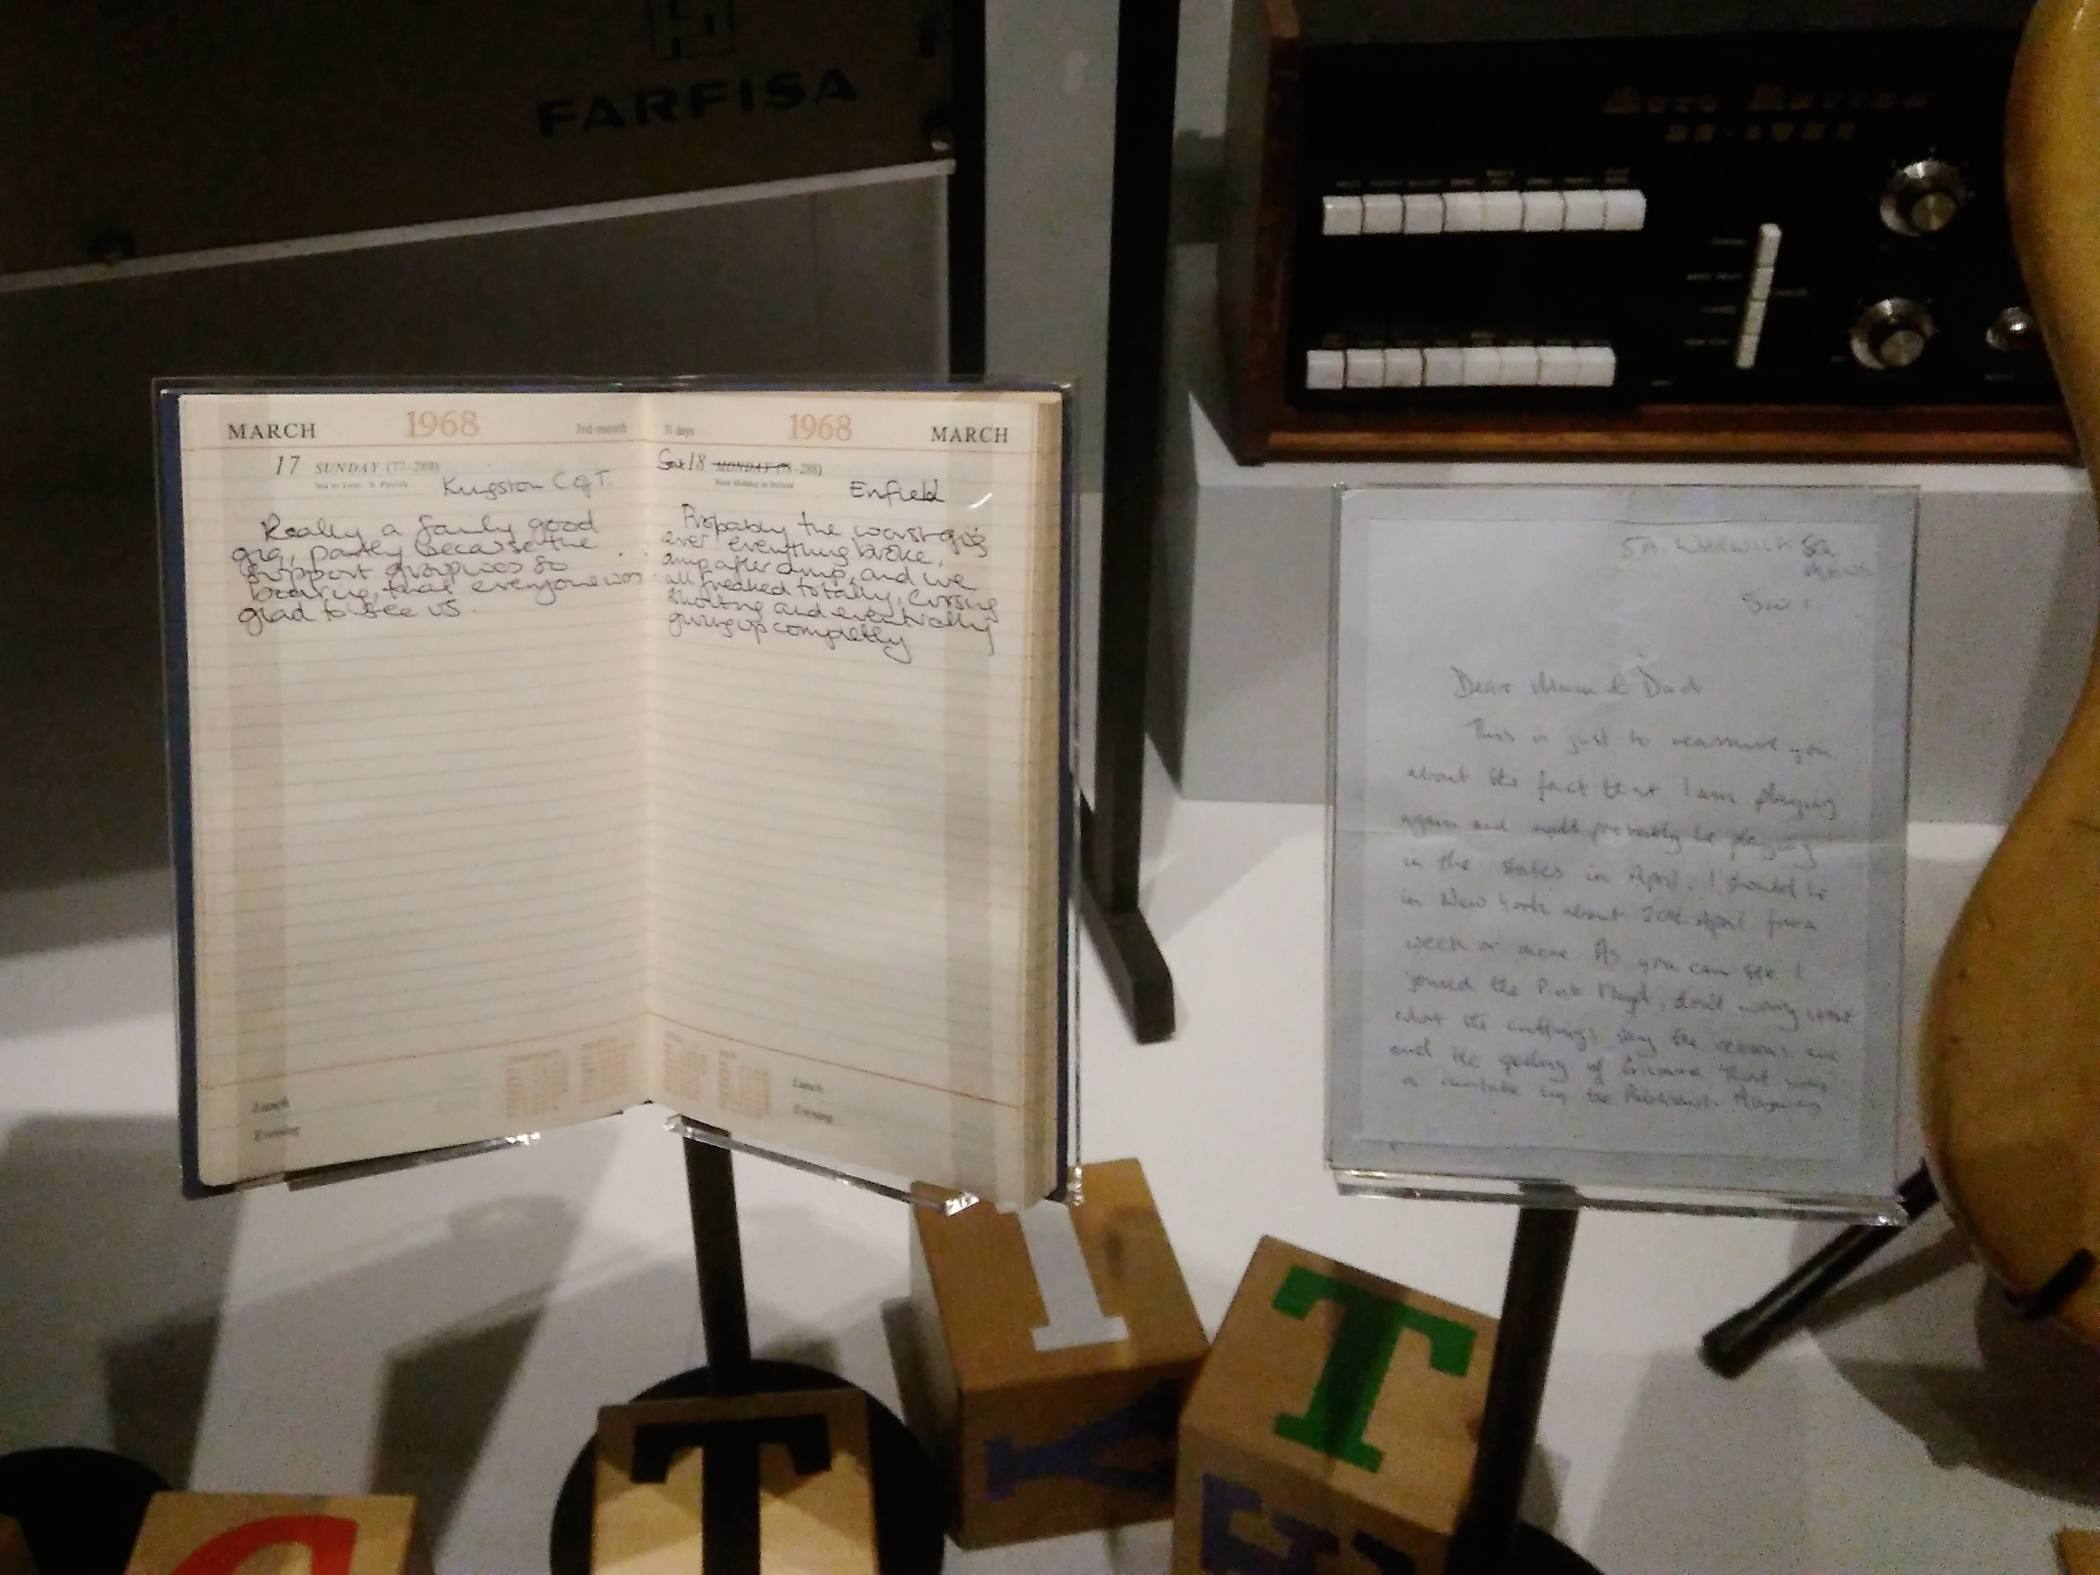 FARFISA
DE-LUXE
MARCH 1968 3rd month
17 SUNDAY (77-289)
Kingston C of T.
Really a fairly good
gig, partly because the
support group was so
boaring, that everyone was
glad to see us.
Lunch
Evening
31 days 1968 MARCH
Sat 18 MONDAY (78-288)
Bank Holiday in Ireland
Enfield
Probably the worst gig
ever everything broke,
amp after amp, and we
all freaked totally, cursing
shouting and eventually
giving up completly
Lunch
Evening
5A. WARWICK SQ
MEWS
SW 1
Dear Mum & Dad
This is just to reassure you
about the fact that I am playing
again and will probably be playing
in the states in April. I should be
in New York about 20th April for a
week or more. As you can see I
joined the Pink Floyd, don't worry about
what the cuttings say the reviews are
and the spelling of was
a mistake by the Publicist.
I
T
T